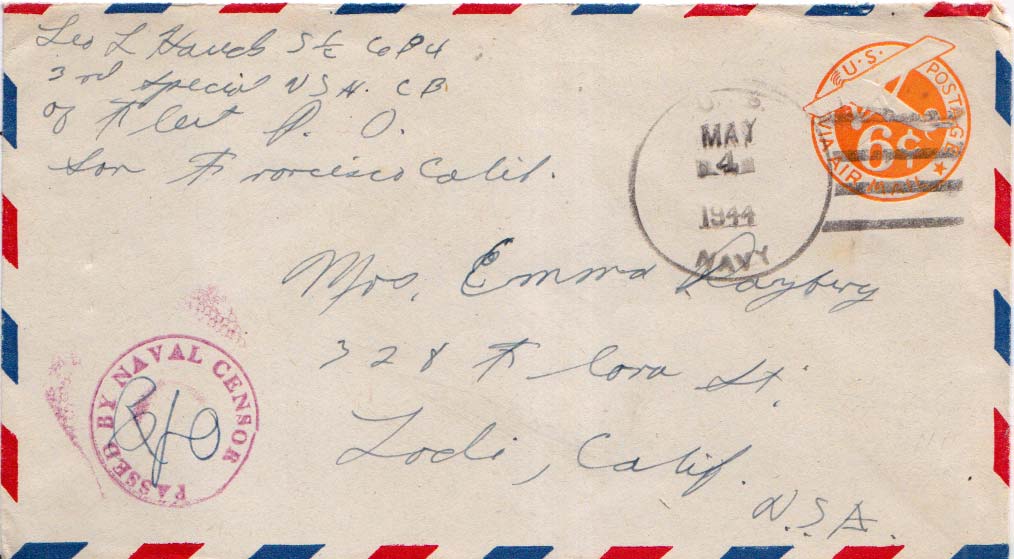 Leo L Hauck S1/c Co B4
3rd Special U S N. C B
% Fleet P. O.
San Francisco Calif.
U.S. POSTAGE
6¢
VIA AIR MAIL
U. S.
MAY
4
1944
NAVY
Mrs. Emma
328 Flora St.
Lodi, Calif.
U.S.A.
PASSED BY NAVAL CENSOR